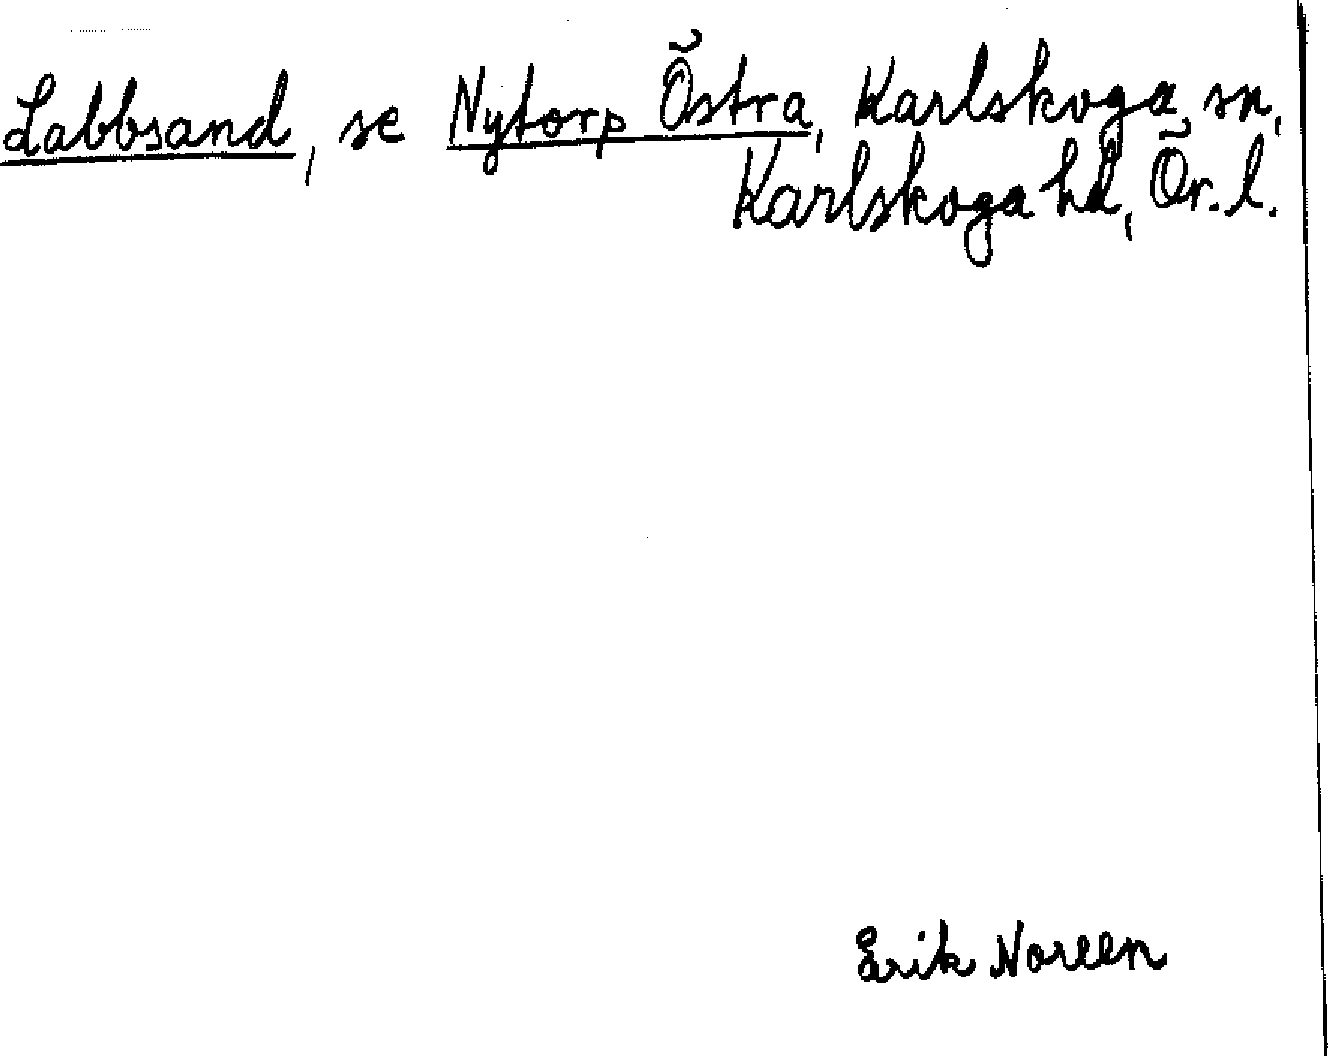 Labbsand, se Nytorp Östra, Karlskoga sn,
Karlskoga hd, Ör. l.
Erik Noreen